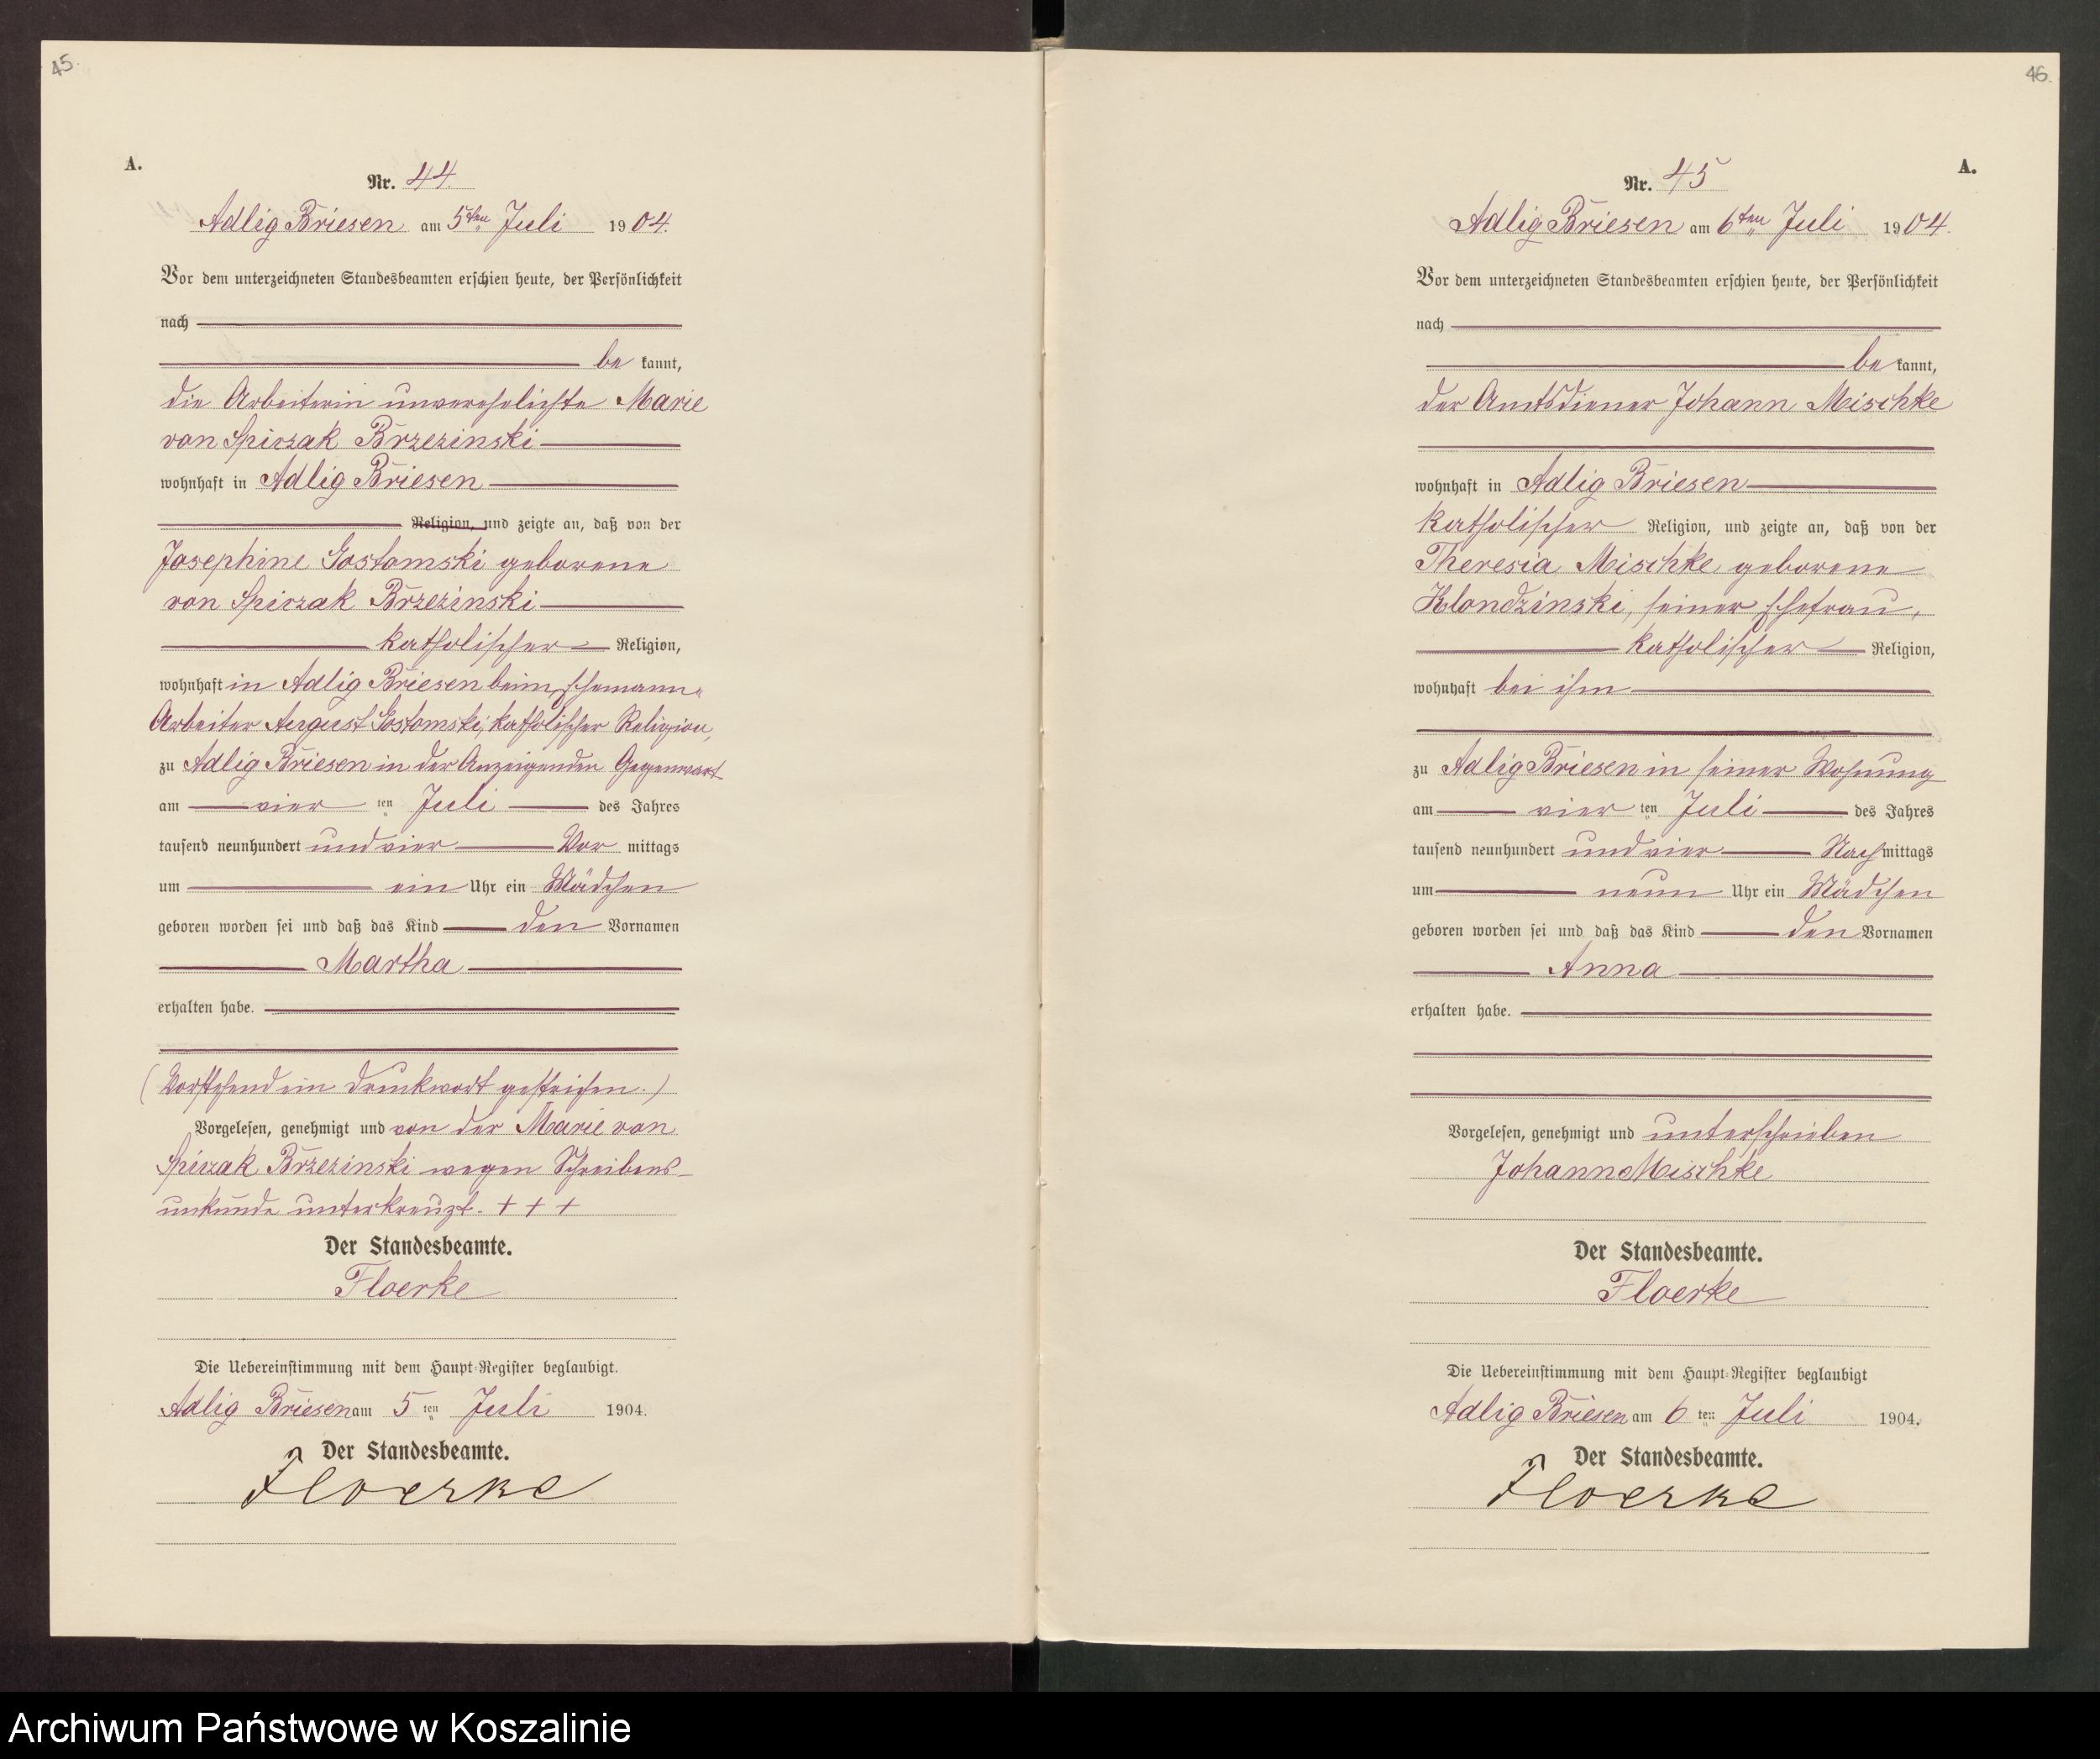 45.
A.
Nr. 44.
Adlig Briesen am 5ten Juli 1904.
Vor dem unterzeichneten Standesbeamten erschien heute, der Persönlichkeit
nach
be kannt,
die Arbeiterin unverehelichte Marie
von Spiczak Brzezinski
wohnhaft in Adlig Briesen
Religion, und zeigte an, daß von der
Josephine Gostomski geborene
von Spiczak Brzezinski
katholischer Religion,
wohnhaft in Adlig Briesen beim Ehemann
Arbeiter August Gostomski, katholischer Religion,
zu Adlig Briesen in der Anzeigenden Gegenwart
am vier ten Juli des Jahres
tausend neunhundert und vier Vor mittags
um ein Uhr ein Mädchen
geboren worden sei und daß das Kind den Vornamen
Martha
erhalten habe.
(Vorstehend ein Druckwort gestrichen.)
Vorgelesen, genehmigt und von der Marie von
Spiczak Brzezinski wegen Schreibens-
unkunde unterkreuzt. + + +
Der Standesbeamte.
Floerke
Die Uebereinstimmung mit dem Haupt-Register beglaubigt.
Adlig Briesen am 5 ten Juli 1904.
Der Standesbeamte.
Floerke
46.
A.
Nr. 45
Adlig Briesen am 6ten Juli 1904.
Vor dem unterzeichneten Standesbeamten erschien heute, der Persönlichkeit
nach
be kannt,
der Amtsdiener Johann Mischke
wohnhaft in Adlig Briesen
katholischer Religion, und zeigte an, daß von der
Theresia Mischke geborene
Klondzinski, seiner Ehefrau,
katholischer Religion,
wohnhaft bei ihm
zu Adlig Briesen in seiner Wohnung
am vier ten Juli des Jahres
tausend neunhundert und vier Nach mittags
um neun Uhr ein Mädchen
geboren worden sei und daß das Kind den Vornamen
Anna
erhalten habe.
Vorgelesen, genehmigt und unterschrieben
Johann Mischke
Der Standesbeamte.
Floerke
Die Uebereinstimmung mit dem Haupt-Register beglaubigt
Adlig Briesen am 6 ten Juli 1904.
Der Standesbeamte.
Floerke
Archiwum Państwowe w Koszalinie